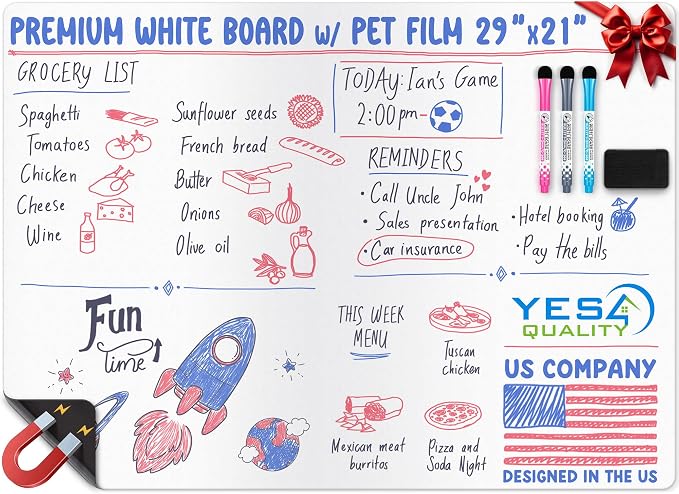 PREMIUM WHITE BOARD w/ PET FILM 29"x21"
GROCERY LIST
Spaghetti
Tomatoes
Chicken
Cheese
Wine
Sunflower seeds
French bread
Butter
Onions
Olive oil
TODAY: Ian's Game
2:00pm-
REMINDERS
• Call Uncle John
• Sales presentation
• Car insurance
• Hotel booking
• Pay the bills
Fun
time
THIS WEEK
MENU
Tuscan
chicken
Mexican meat
burritos
Pizza and
Soda Night
YES4
QUALITY
US COMPANY
DESIGNED IN THE US